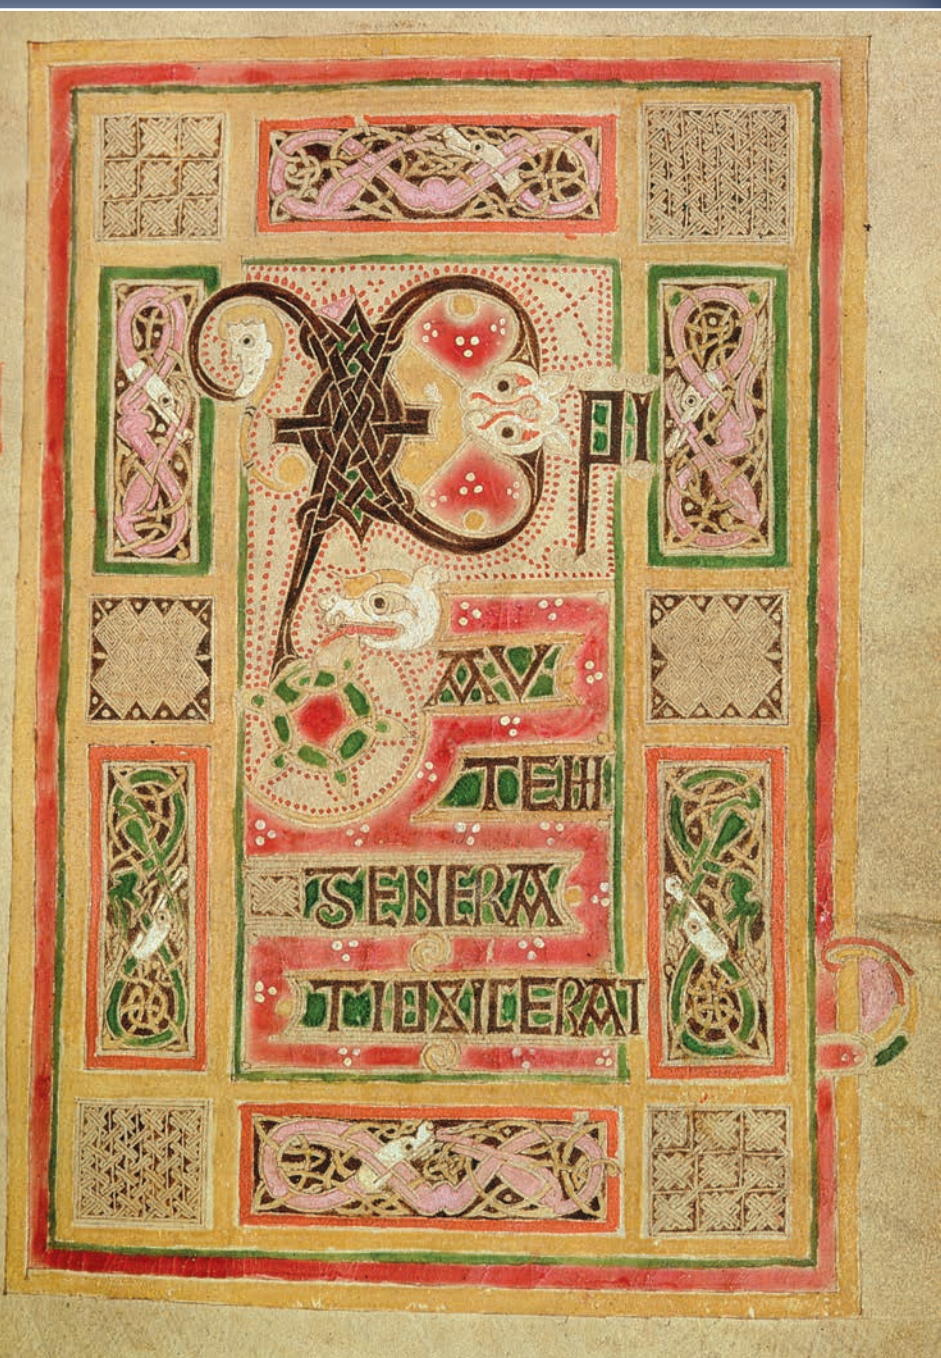 XPI
AV
TEM
GENERA
TIOSICERAT